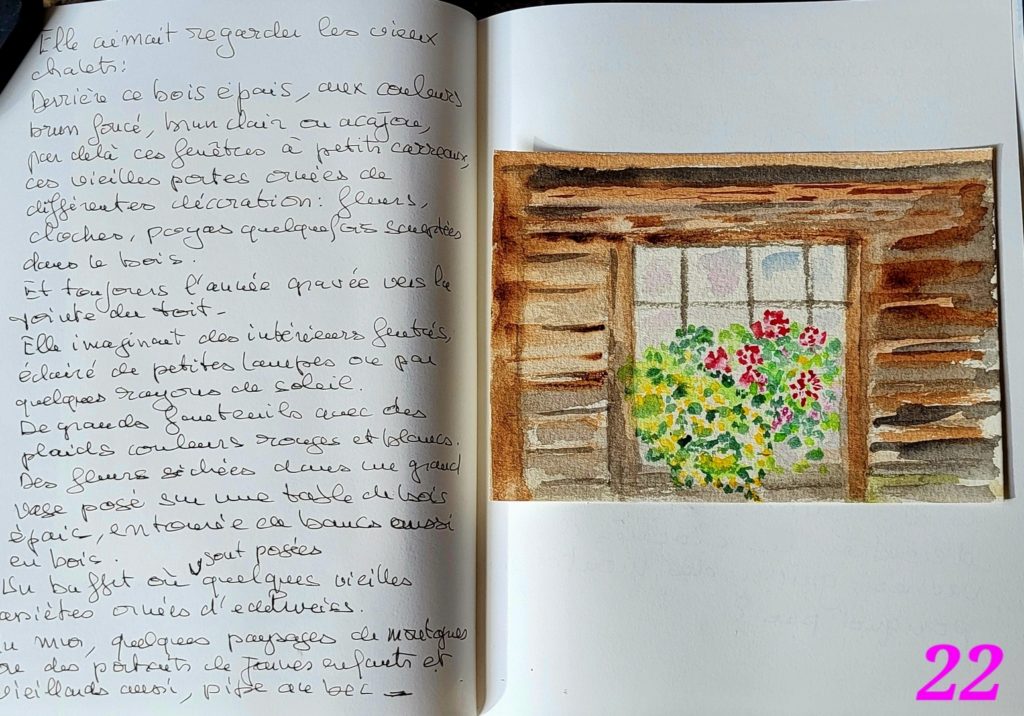 Elle aimait regarder les vieux
chalets :
Derrière ce bois épais, aux couleurs
brun foncé, brun clair ou acajou,
par delà ces fenêtres à petits carreaux,
ces vieilles portes ornées de
différentes décoration : fleurs,
cloches, poyas quelquefois sculptées
dans le bois.
Et toujours l'année gravée vers la
pointe du toit -
Elle imaginait des intérieurs feutrés,
éclairé de petites lampes ou par
quelques rayons de soleil.
De grands fauteuils avec des
plaids couleurs rouges et blancs.
Des fleurs séchées dans un grand
vase posé sur une table de bois
épais, entourée de bancs aussi
en bois.
sont posées
Un buffet où quelques vieilles
assiètes ornées d'edelweiss.
Au mur, quelques paysages de montagnes
ou des portraits de jeunes enfants et
vieillards aussi, pipe au bec -
22